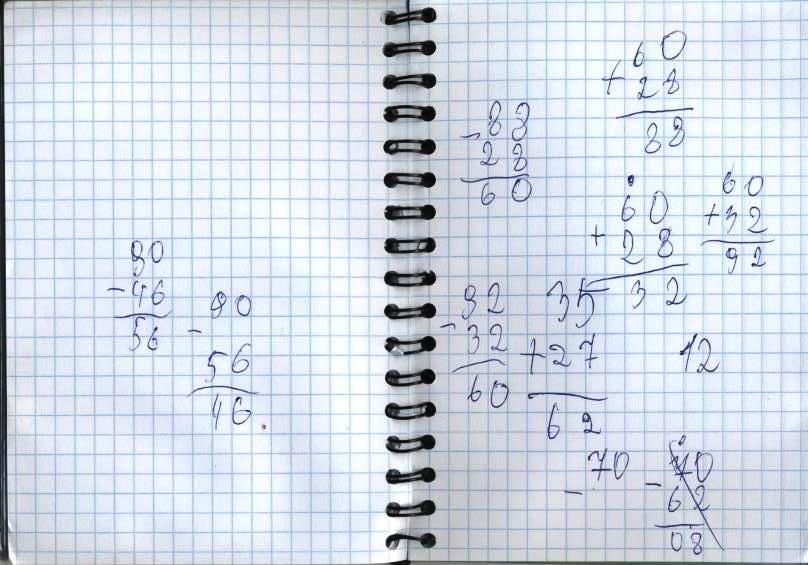 90
-46
56
90
-
56
46
60
+28
88
88
-28
60
60
+28
32
60
+32
92
92
-32
60
35
+27
62
12
70
-
70
-62
08